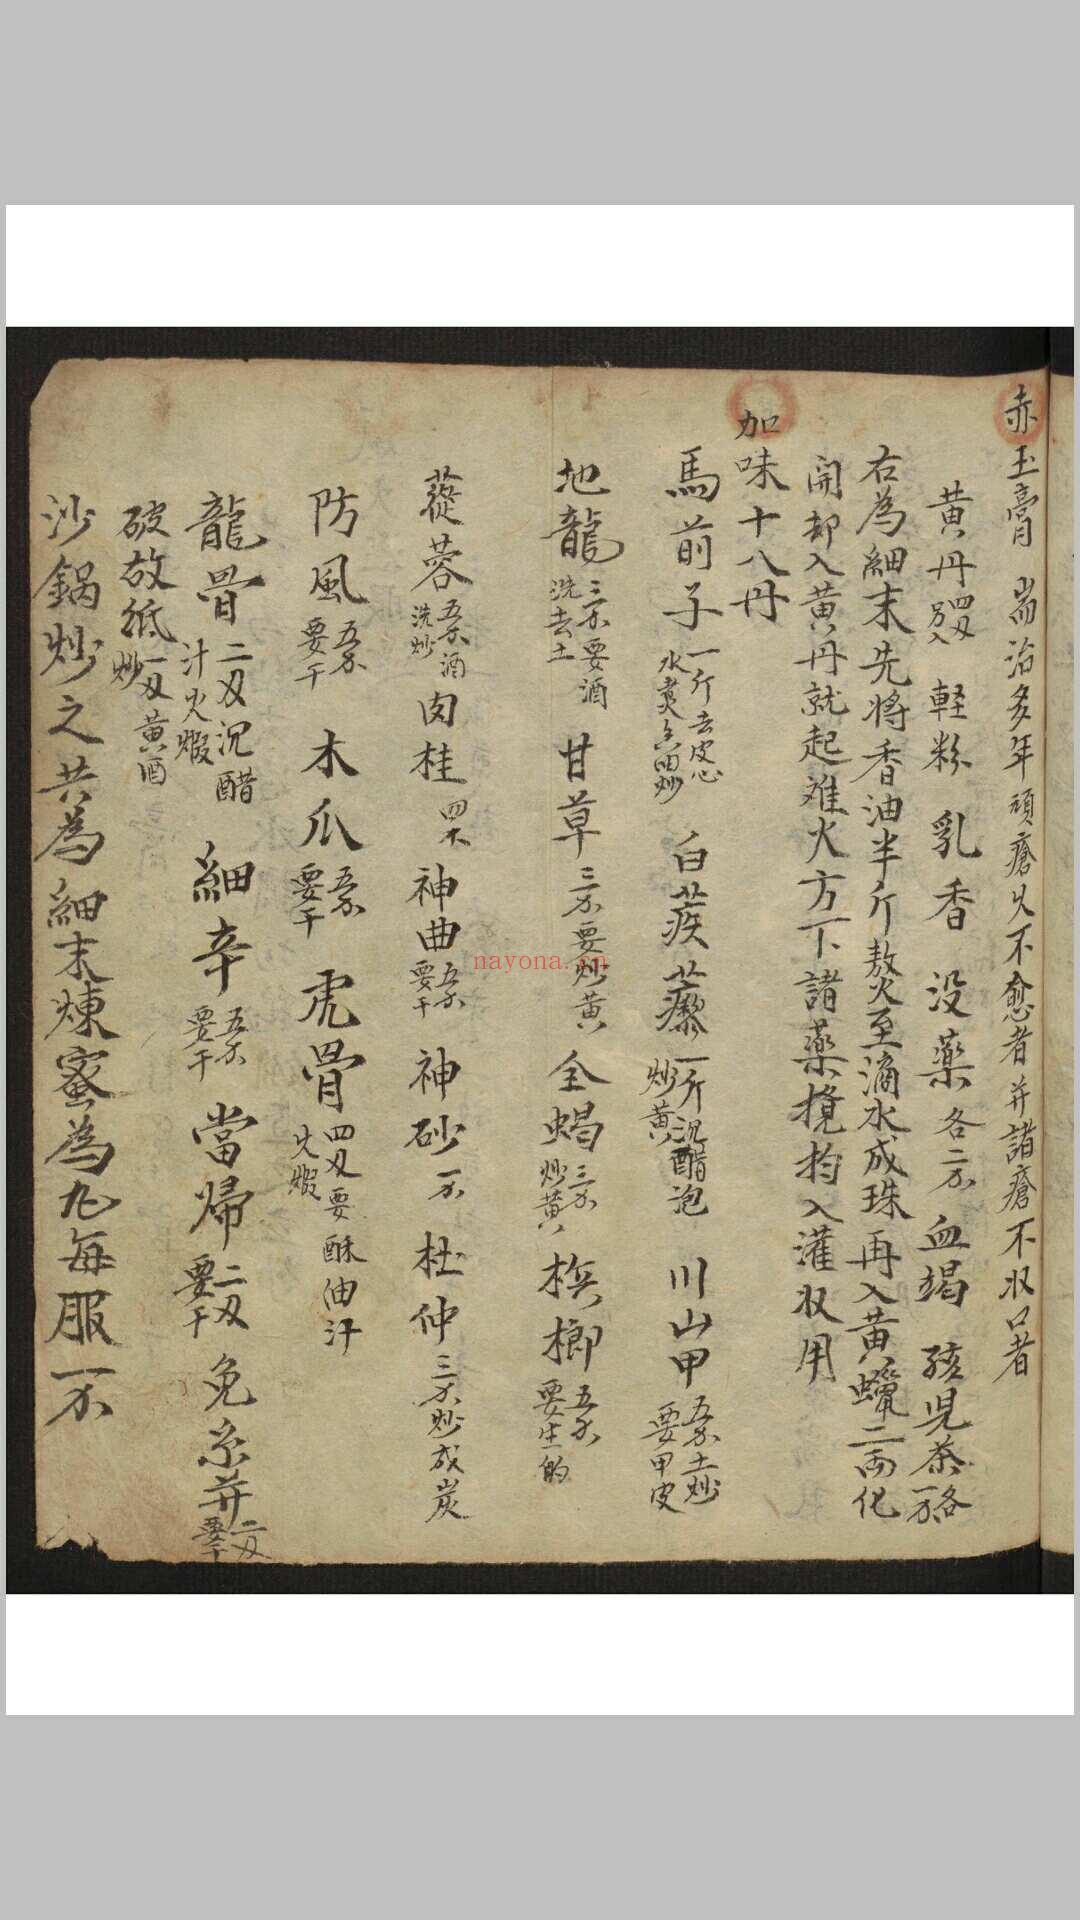 赤玉膏 耑治多年頑瘡久不愈者并諸瘡不収口者
黄丹 四刄 另入 軽粉 乳香 没薬 各二 血竭 孩児茶 各
右為細末先將香油半斤熬至滴水成珠再入黄蠟二両化
開却入黄丹就起难火方下諸薬攪扚入灌収用
加味十八丹
馬前子 一斤去皮心 水煮 油炒 白蒺藜 一斤沉醋泡 炒黄 川山甲 土炒 要甲皮
地龍 要酒 洗去土 甘草 要炒黄 全蝎 炒黄 梹榔 要生的
蓯蓉 酒 洗炒 肉桂 四 神曲 要干 神砂 杜仲 炒成炭
防風 要干 木瓜 要干 虎骨 四刄要酥油汁 火煆
龍骨 二刄沉醋 汁火煆 細辛 要干 當帰 二刄 要干 免糸并 二刄 要干
破故紙 一刄黄酒 炒
沙鍋炒之共為細末煉蜜為丸每服一
nayona.cn